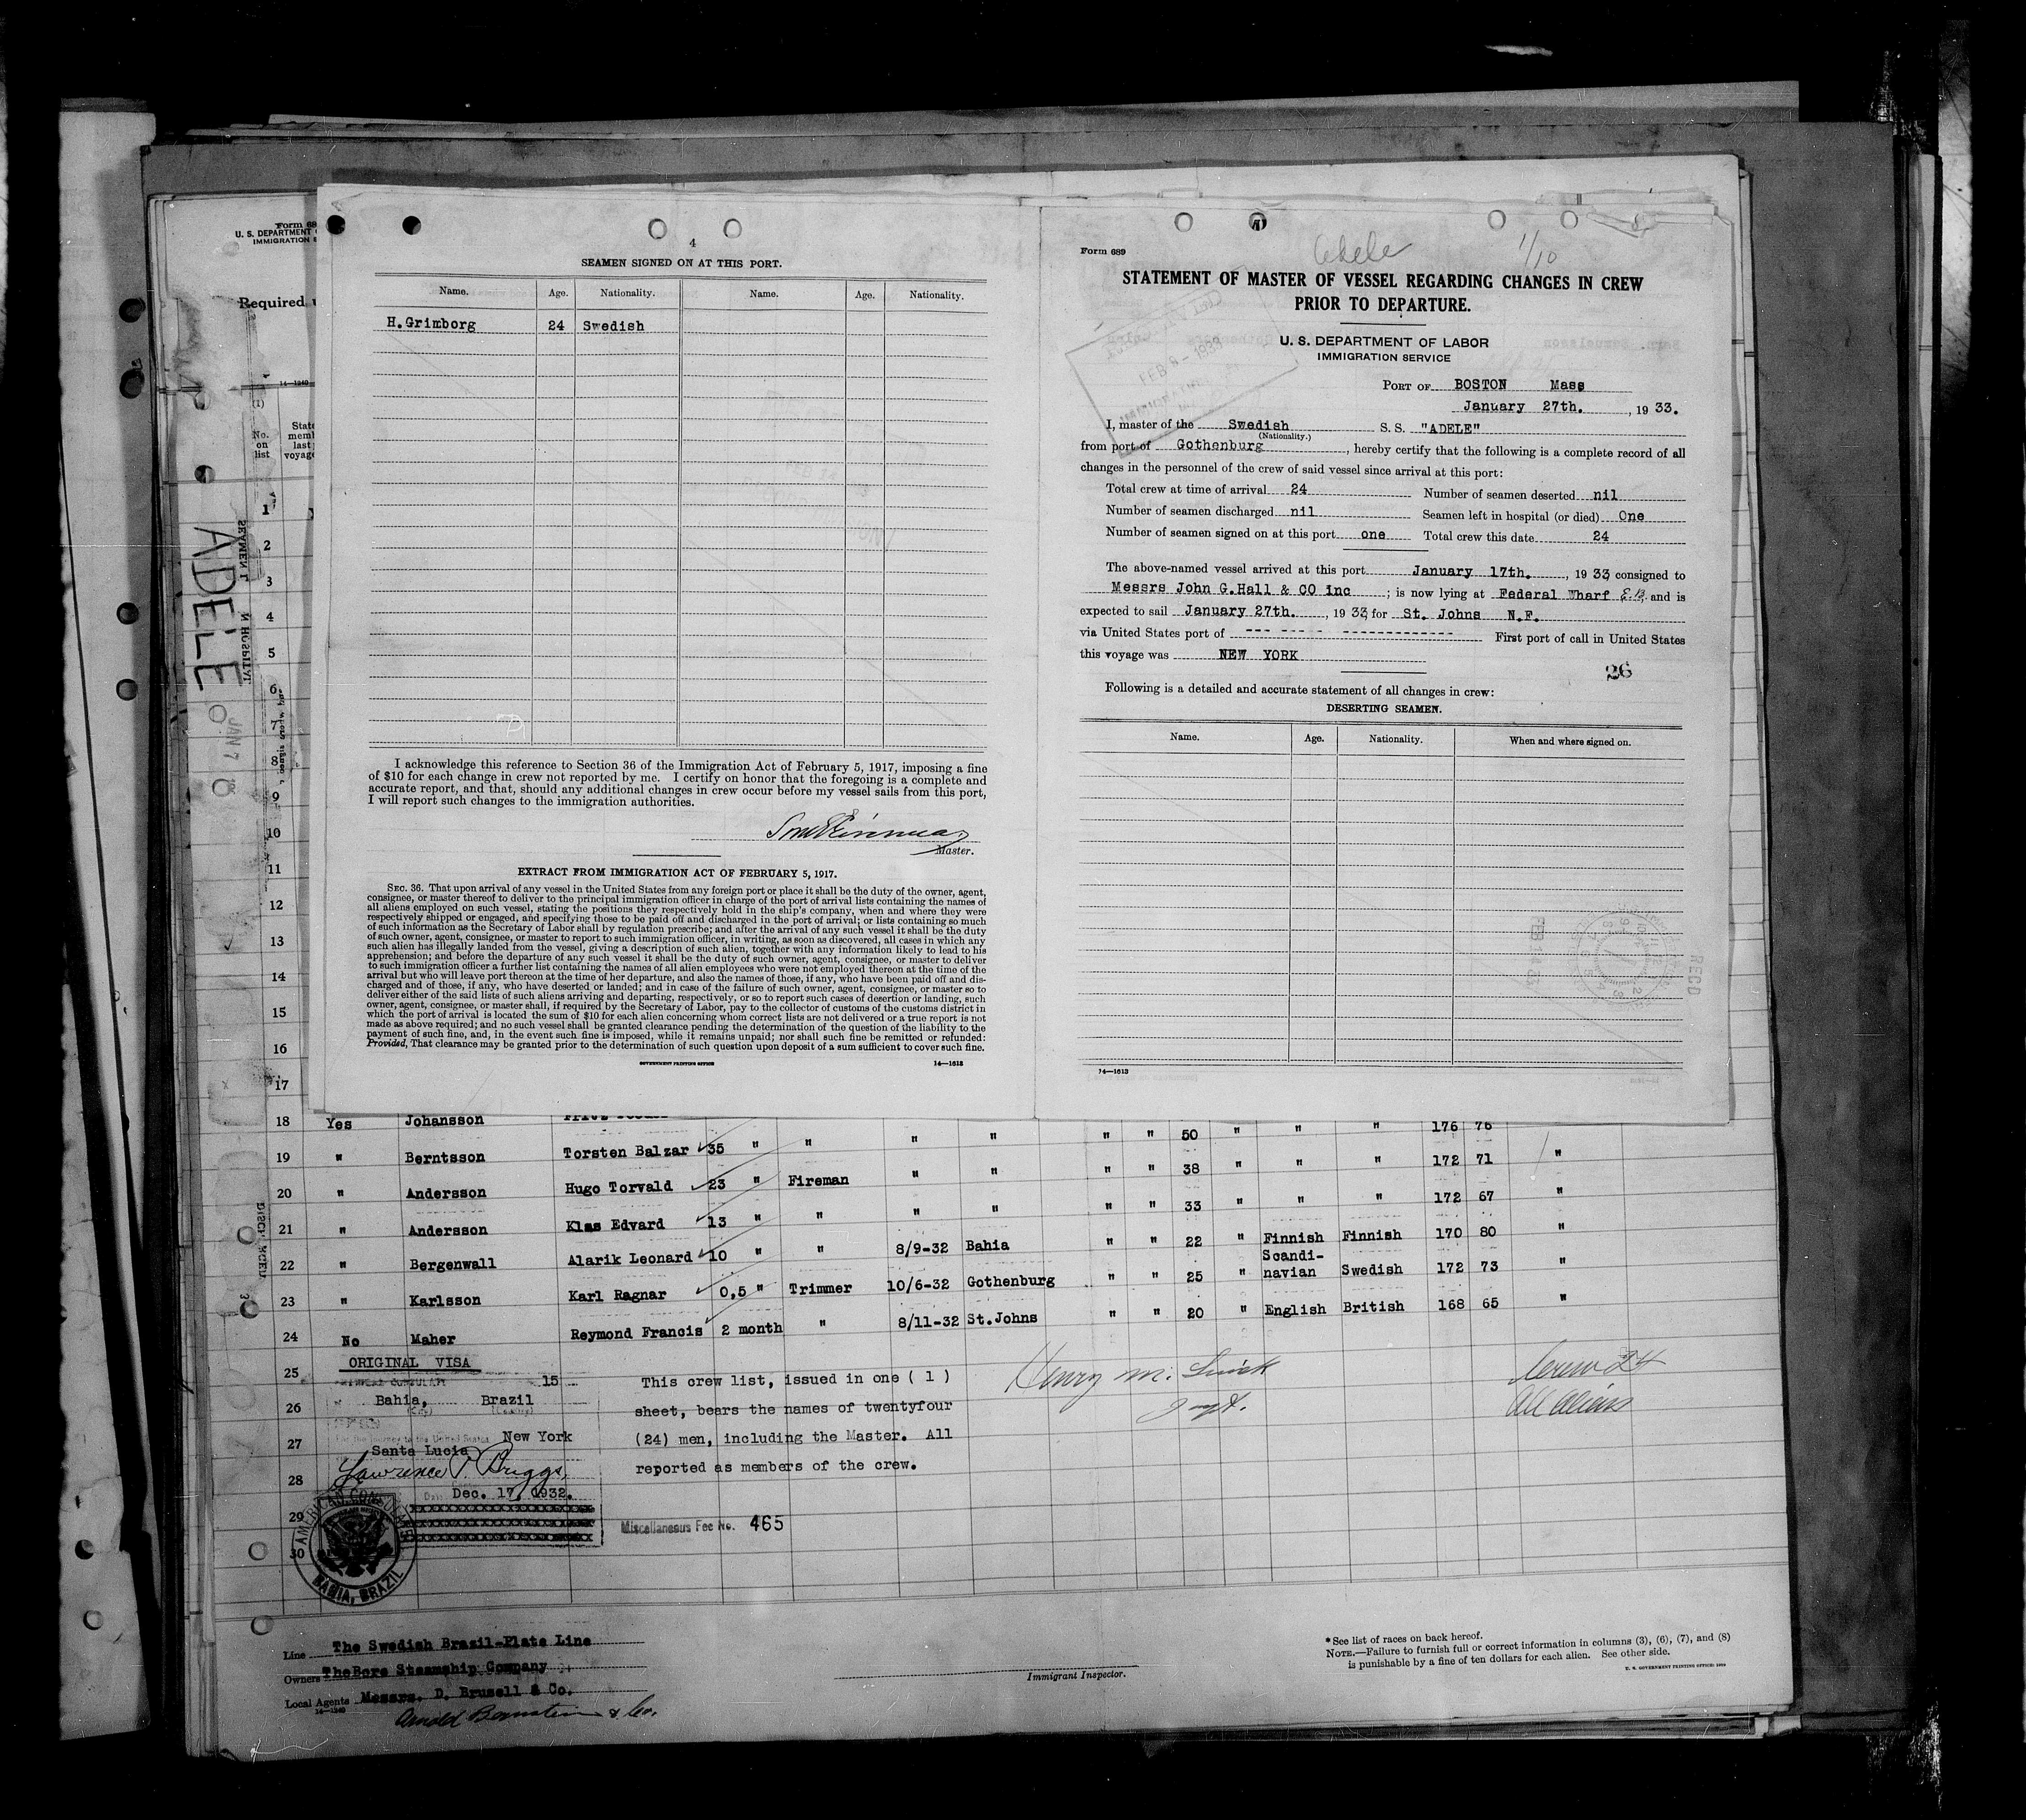 Form 68
U. S. DEPARTMENT
IMMIGRATION
Required
14—1240
(1)
No. on list
ADELE
JAN 7
4
SEAMEN SIGNED ON AT THIS PORT.
Name. Age. Nationality. Name. Age. Nationality.
H.Grimborg 24 Swedish
I acknowledge this reference to Section 36 of the Immigration Act of February 5, 1917, imposing a fine
of $10 for each change in crew not reported by me. I certify on honor that the foregoing is a complete and
accurate report, and that, should any additional changes in crew occur before my vessel sails from this port,
I will report such changes to the immigration authorities.
Master.
EXTRACT FROM IMMIGRATION ACT OF FEBRUARY 5, 1917.
SEC. 36. That upon arrival of any vessel in the United States from any foreign port or place it shall be the duty of the owner, agent,
consignee, or master thereof to deliver to the principal immigration officer in charge of the port of arrival lists containing the names of
all aliens employed on such vessel, stating the positions they respectively hold in the ship's company, when and where they were
respectively shipped or engaged, and specifying those to be paid off and discharged in the port of arrival; or lists containing so much
of such information as the Secretary of Labor shall by regulation prescribe; and after the arrival of any such vessel it shall be the duty
of such owner, agent, consignee, or master to report to such immigration officer, in writing, as soon as discovered, all cases in which any
such alien has illegally landed from the vessel, giving a description of such alien, together with any information likely to lead to his
apprehension; and before the departure of any such vessel it shall be the duty of such owner, agent, consignee, or master to deliver
to such immigration officer a further list containing the names of all alien employees who were not employed thereon at the time of the
arrival but who will leave port thereon at the time of her departure, and also the names of those, if any, who have been paid off and dis-
charged and of those, if any, who have deserted or landed; and in case of the failure of such owner, agent, consignee, or master so to
deliver either of the said lists of such aliens arriving and departing, respectively, or so to report such cases of desertion or landing, such
owner, agent, consignee, or master shall, if required by the Secretary of Labor, pay to the collector of customs of the customs district in
which the port of arrival is located the sum of $10 for each alien concerning whom correct lists are not delivered or a true report is not
made as above required; and no such vessel shall be granted clearance pending the determination of the question of the liability to the
payment of such fine, and, in the event such fine is imposed, while it remains unpaid; nor shall such fine be remitted or refunded:
Provided, That clearance may be granted prior to the determination of such question upon deposit of a sum sufficient to cover such fine.
GOVERNMENT PRINTING OFFICE 14—1613
Form 689
Adele 1/10
STATEMENT OF MASTER OF VESSEL REGARDING CHANGES IN CREW
PRIOR TO DEPARTURE.
U. S. DEPARTMENT OF LABOR
IMMIGRATION SERVICE
FEB 8 - 1933
PORT OF BOSTON Mass
January 27th. , 19 33.
I, master of the Swedish S. S. "ADELE"
(Nationality.)
from port of Gothenburg , hereby certify that the following is a complete record of all
changes in the personnel of the crew of said vessel since arrival at this port:
Total crew at time of arrival 24 Number of seamen deserted nil
Number of seamen discharged nil Seamen left in hospital (or died) One
Number of seamen signed on at this port one Total crew this date 24
The above-named vessel arrived at this port January 17th. , 19 33, consigned to
Messrs John G.Hall & CO inc ; is now lying at Federal Wharf E.B. and is
expected to sail January 27th. , 19 33, for St. Johns N.F.
via United States port of --- --- - ------------- First port of call in United States
this voyage was NEW YORK
26
Following is a detailed and accurate statement of all changes in crew:
DESERTING SEAMEN.
Name. Age. Nationality. When and where signed on.
14—1613
1
2
3
4
5
6
7
8
9
10
11
12
13
14
15
16
17
18 Yes Johansson 176 76
19 " Berntsson Torsten Balzar 35 " " " " " " 50 " " " 172 71 "
20 " Andersson Hugo Torvald 23 " Fireman " " " " 38 " " " 172 67 "
21 " Andersson Klas Edvard 13 " " " " " " 33 " " " 170 80 "
22 " Bergenwall Alarik Leonard 10 " " 8/9-32 Bahia " " 22 " Finnish Finnish 172 73 "
23 " Karlsson Karl Ragnar 0,5 " Trimmer 10/6-32 Gothenburg " " 25 " Scandi-navian Swedish 168 65 "
24 No Maher Reymond Francis 2 month " 8/11-32 St.Johns " " 20 " English British
25 ORIGINAL VISA
15
26 Bahia, Brazil
27 New York
Santa Lucia
28 Lawrence P. Briggs,
Dec. 17, 1932.
29
30
AMERICAN CONSULATE
BAHIA, BRAZIL
This crew list, issued in one ( 1 )
sheet, bears the names of twentyfour
(24) men, including the Master. All
reported as members of the crew.
Miscellaneous Fee No. 465
Henry M.
Crew 24
All Aliens
Line The Swedish Brazil-Plate Line
Owners TheBore Steamship Company
Local Agents Messrs. D. Brusell & Co.
14—1240
Arnold Bernstein & Co.
Immigrant Inspector.
*See list of races on back hereof.
NOTE.—Failure to furnish full or correct information in columns (3), (6), (7), and (8)
is punishable by a fine of ten dollars for each alien. See other side.